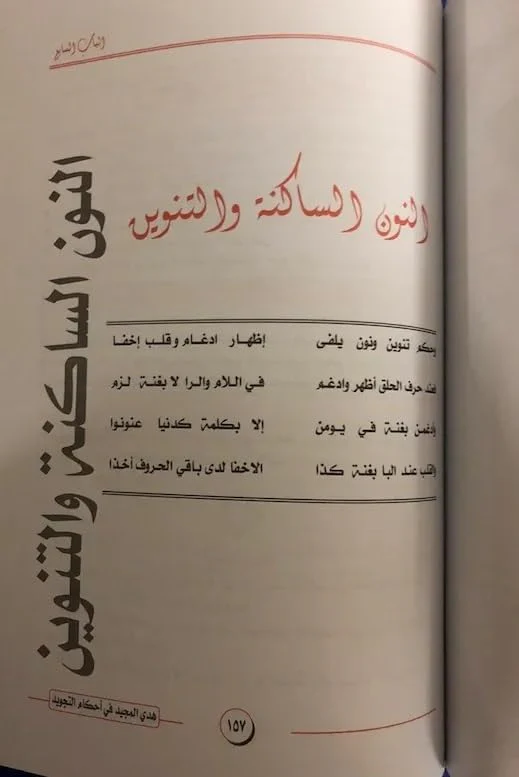 الباب السابع
النون الساكنة والتنوين
النون الساكنة والتنوين
وحكم تنوين ونون يلفى إظهار ادغام وقلب إخفا
فعند حرف الحلق أظهر وادغم في اللام والرا لا بغنة لزم
وأدغمن بغنة في يومن إلا بكلمة كدنيا عنونوا
والقلب عند البا بغنة كذا الاخفا لدى باقي الحروف أخذا
هدي المجيد في أحكام التجويد
١٥٧